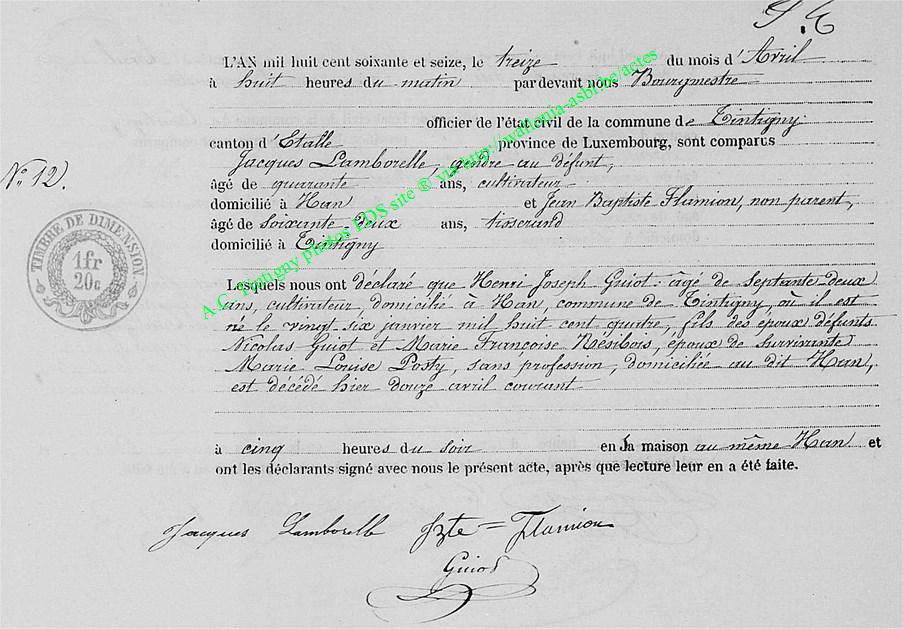 L'AN mil huit cent soixante et seize, le treize du mois d'Avril
à huit heures du matin pardevant nous Bourgmestre
officier de l'état civil de la commune de Tintigny
canton d'Etalle province de Luxembourg, sont comparus
Jacques Lamborelle, gendre au défunt,
N° 12.
âgé de quarante ans, cultivateur
domicilié à Han et Jean Baptiste Flamion, non parent,
âgé de soixante deux ans, tisserand
domicilié à Tintigny
TIMBRE DE DIMENSION
1 fr
20 c
Lesquels nous ont déclaré que Henri Joseph Guiot âgé de septante deux
ans, cultivateur, domicilié à Han, commune de Tintigny, où il est
né le vingt six janvier mil huit cent quatre, fils des époux défunts
Nicolas Guiot et Marie Françoise Résibois, époux de survivante
Marie Louise Posty, sans profession, domiciliée au dit Han,
est décédé hier douze avril courant
à cinq heures du soir en la maison au même Han et
ont les déclarants signé avec nous le présent acte, après que lecture leur en a été faite.
Jacques Lamborelle Flamion
Guiot
A.G. Tintigny photos EDS site ® via http://wallonia-asbl.be/actes